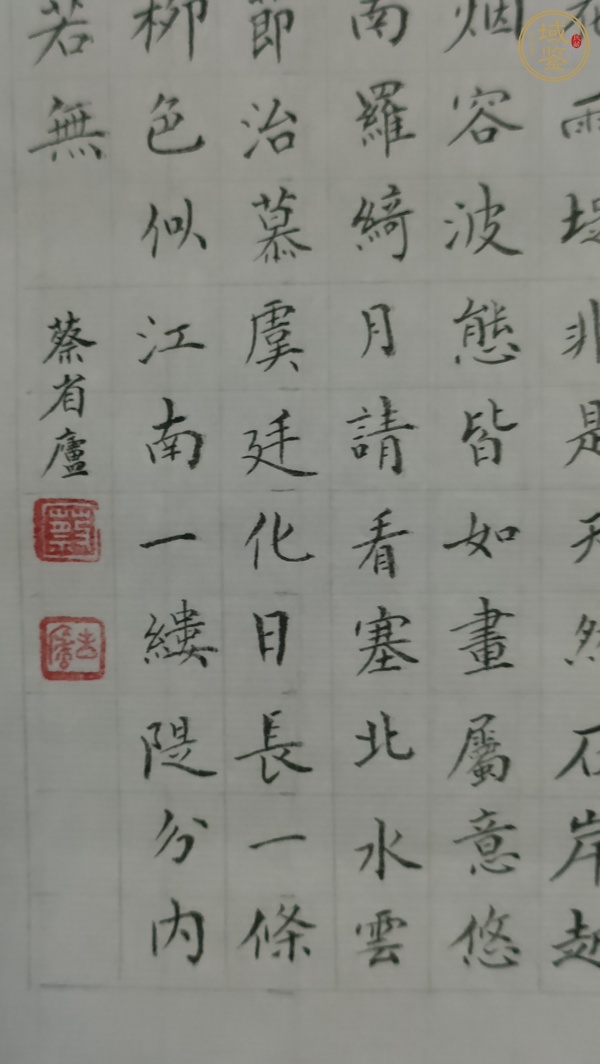 雨堤非是天然石岸起
烟容波態皆如畫屬意悠
南羅綺月請看塞北水雲
節治慕虞廷化日長一條
柳色似江南一縷隄分内
若無
蔡省廬
域鉴